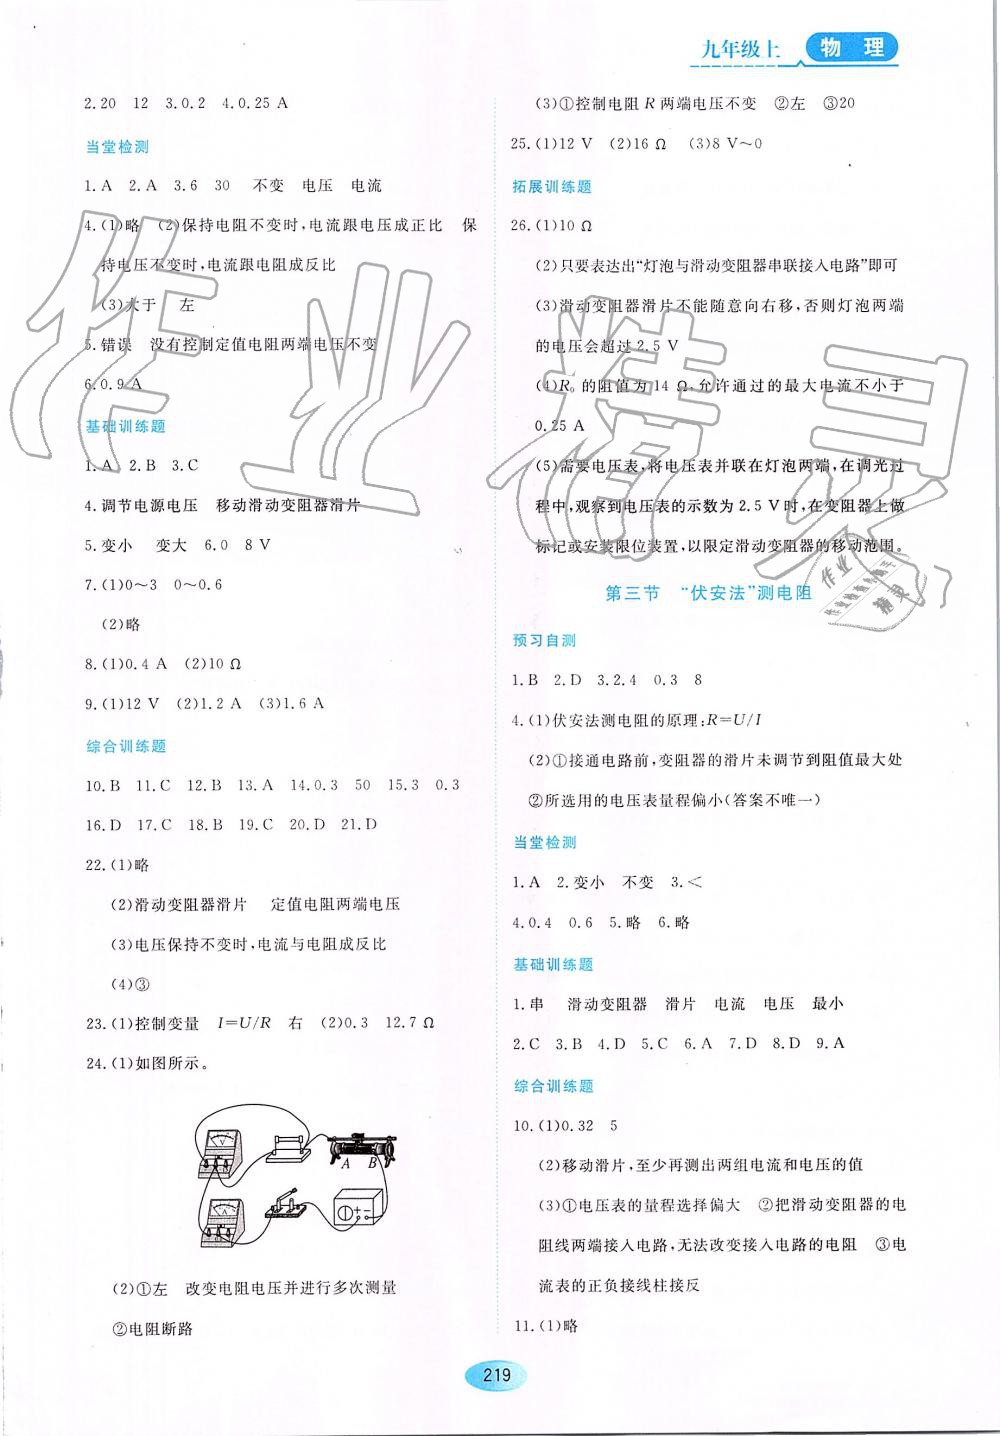 九年级上 物理
2.20 12 3.0.2 4.0.25 A
当堂检测
1.A 2.A 3.6 30 不变 电压 电流
4.(1)略 (2)保持电阻不变时,电流跟电压成正比 保
持电压不变时,电流跟电阻成反比
(3)大于 左
5.错误 没有控制定值电阻两端电压不变
6.0.9 A
基础训练题
1.A 2.B 3.C
4.调节电源电压 移动滑动变阻器滑片
5.变小 变大 6.0 8 V
7.(1)0～3 0～0.6
(2)略
8.(1)0.4 A (2)10 Ω
9.(1)12 V (2)1.2 A (3)1.6 A
综合训练题
10.B 11.C 12.B 13.A 14.0.3 50 15.3 0.3
16.D 17.C 18.B 19.C 20.D 21.D
22.(1)略
(2)滑动变阻器滑片 定值电阻两端电压
(3)电压保持不变时,电流与电阻成反比
(4)③
23.(1)控制变量 I=U/R 右 (2)0.3 12.7 Ω
24.(1)如图所示。
V
A B
A
(2)①左 改变电阻电压并进行多次测量
②电阻断路
(3)①控制电阻 R 两端电压不变 ②左 ③20
25.(1)12 V (2)16 Ω (3)8 V～0
拓展训练题
26.(1)10 Ω
(2)只要表达出“灯泡与滑动变阻器串联接入电路”即可
(3)滑动变阻器滑片不能随意向右移,否则灯泡两端
的电压会超过 2.5 V
(4)R₀ 的阻值为 14 Ω,允许通过的最大电流不小于
0.25 A
(5)需要电压表,将电压表并联在灯泡两端,在调光过
程中,观察到电压表的示数为 2.5 V时,在变阻器上做
标记或安装限位装置,以限定滑动变阻器的移动范围。
第三节 “伏安法”测电阻
预习自测
1.B 2.D 3.2.4 0.3 8
4.(1)伏安法测电阻的原理:R=U/I
(2)①接通电路前,变阻器的滑片未调节到阻值最大处
②所选用的电压表量程偏小(答案不唯一)
当堂检测
1.A 2.变小 不变 3.<
4.0.4 0.6 5.略 6.略
基础训练题
1.串 滑动变阻器 滑片 电流 电压 最小
2.C 3.B 4.D 5.C 6.A 7.D 8.D 9.A
综合训练题
10.(1)0.32 5
(2)移动滑片,至少再测出两组电流和电压的值
(3)①电压表的量程选择偏大 ②把滑动变阻器的电
阻线两端接入电路,无法改变接入电路的电阻 ③电
流表的正负接线柱接反
11.(1)略
219
作业精灵